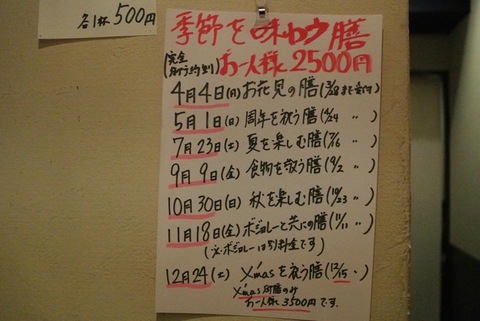 各1杯 500円
季節を味わう膳
(完全予約制) お一人様 2500円
4月4日(月) お花見の膳(3/28まで受付)
5月1日(日) 周年を祝う膳(4/24 〃)
7月23日(土) 夏を楽しむ膳(7/16 〃)
9月9日(金) 食物を敬う膳(9/2 〃)
10月30日(日) 秋を楽しむ膳(10/23 〃)
11月18日(金) ボジョレーと共にの膳(11/11 〃)
(※ボジョレーは別料金です)
12月24(土) X'masを祝う膳(12/15 〃)
X'mas 膳のみ
お一人様 3500円です。